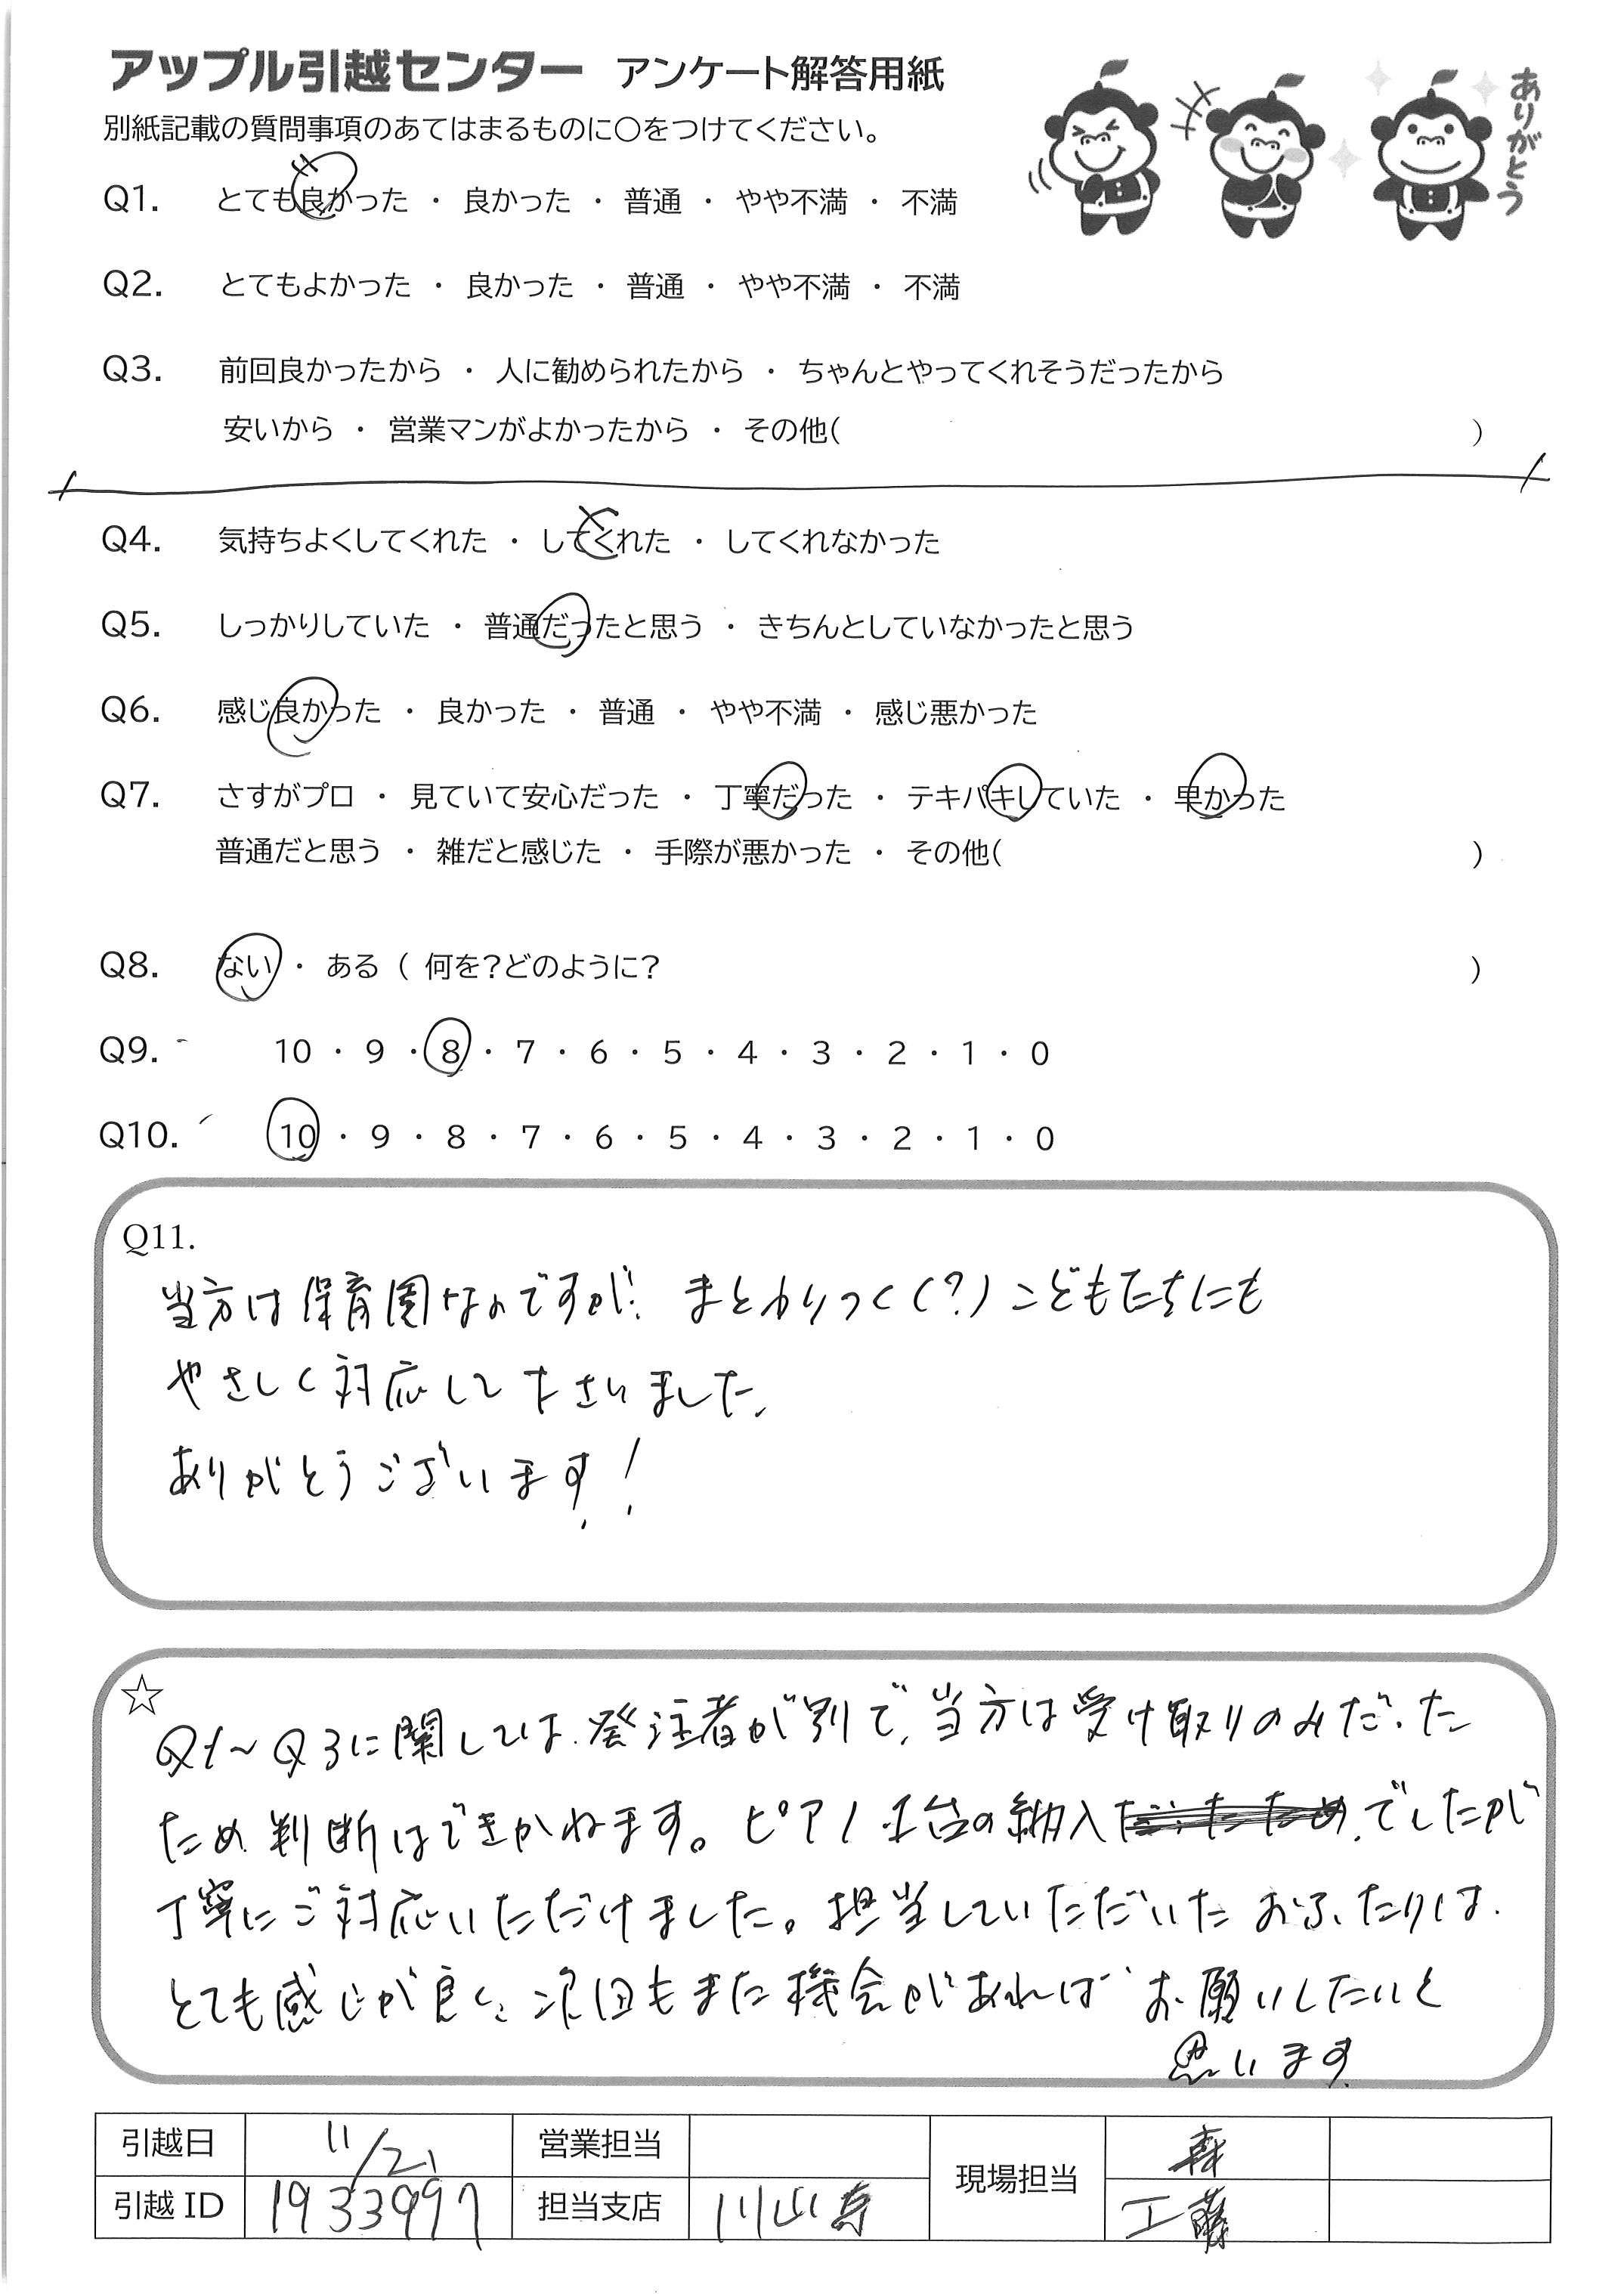 アップル引越センター アンケート解答用紙
ありがとう
別紙記載の質問事項のあてはまるものに○をつけてください。
Q1. とても良かった ・ 良かった ・ 普通 ・ やや不満 ・ 不満
Q2. とてもよかった ・ 良かった ・ 普通 ・ やや不満 ・ 不満
Q3. 前回良かったから ・ 人に勧められたから ・ ちゃんとやってくれそうだったから
安いから ・ 営業マンがよかったから ・ その他( )
Q4. 気持ちよくしてくれた ・ してくれた ・ してくれなかった
Q5. しっかりしていた ・ 普通だったと思う ・ きちんとしていなかったと思う
Q6. 感じ良かった ・ 良かった ・ 普通 ・ やや不満 ・ 感じ悪かった
Q7. さすがプロ ・ 見ていて安心だった ・ 丁寧だった ・ テキパキしていた ・ 早かった
普通だと思う ・ 雑だと感じた ・ 手際が悪かった ・ その他( )
Q8. ない ・ ある ( 何を?どのように? )
Q9. 10 ・ 9 ・ 8 ・ 7 ・ 6 ・ 5 ・ 4 ・ 3 ・ 2 ・ 1 ・ 0
Q10. 10 ・ 9 ・ 8 ・ 7 ・ 6 ・ 5 ・ 4 ・ 3 ・ 2 ・ 1 ・ 0
Q11.
当方は保育園なのですが、まとわりつく(?)こどもたちにも
やさしく対応して下さいました。
ありがとうございます!
☆
Q1~Q3に関しては、発注者が別で、当方は受け取りのみだった
ため判断はできかねます。ピアノ1台の納入でしたが
丁寧にご対応いただけました。担当していただいたおふたりは、
とても感じが良く、次回もまた機会があればお願いしたいと
思います
引越日 11/21 営業担当 現場担当
引越ID 1933997 担当支店 工藤